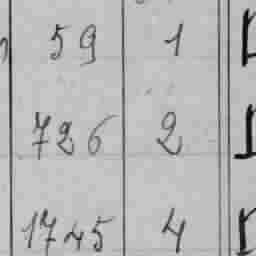 59 1
726 2
1745 4